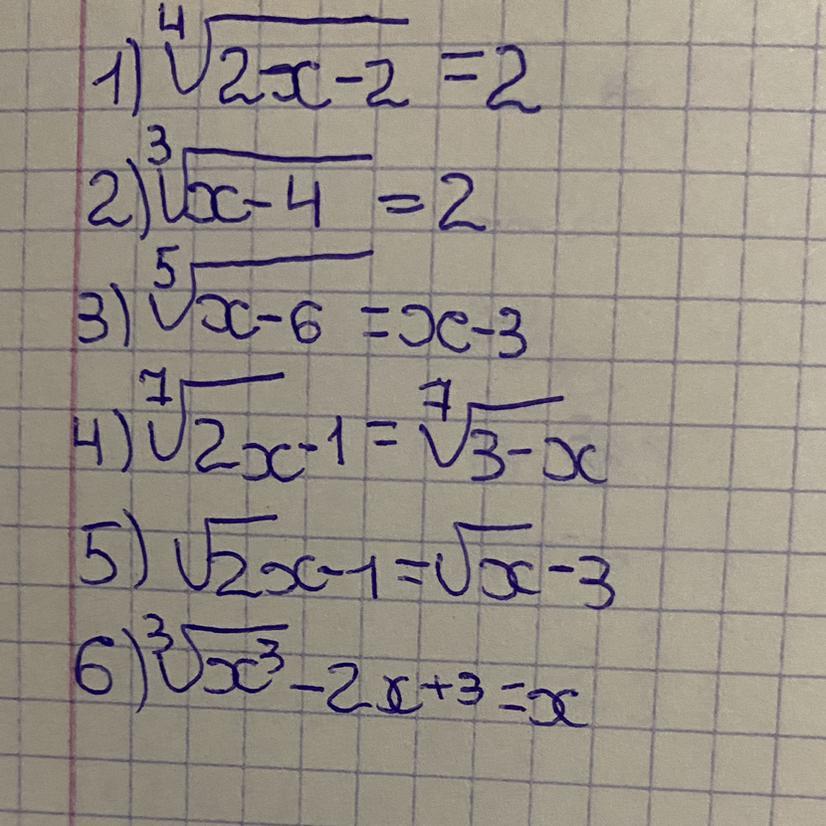 1) ⁴√(2x-2) = 2
2) ³√(x-4) = 2
3) ⁵√(x-6) = x-3
4) ⁷√(2x)-1 = ⁷√(3-x)
5) √2x-1 = √x-3
6) ³√(x³)-2x+3 = x